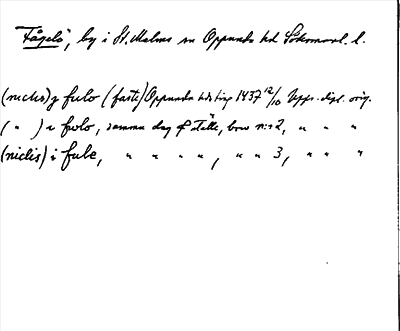 "Fågelö", by i St. Malms sn Oppunda hd Södermanl. l.
(niclis) j fulo (faste) Oppunda hds ting 1437 12/10 Upps. dipl. orig.
( " ) i folo, samma dag & ställe, brev nr: 2, " " "
(niclis) i fule, " " " ", " " 3, " " "